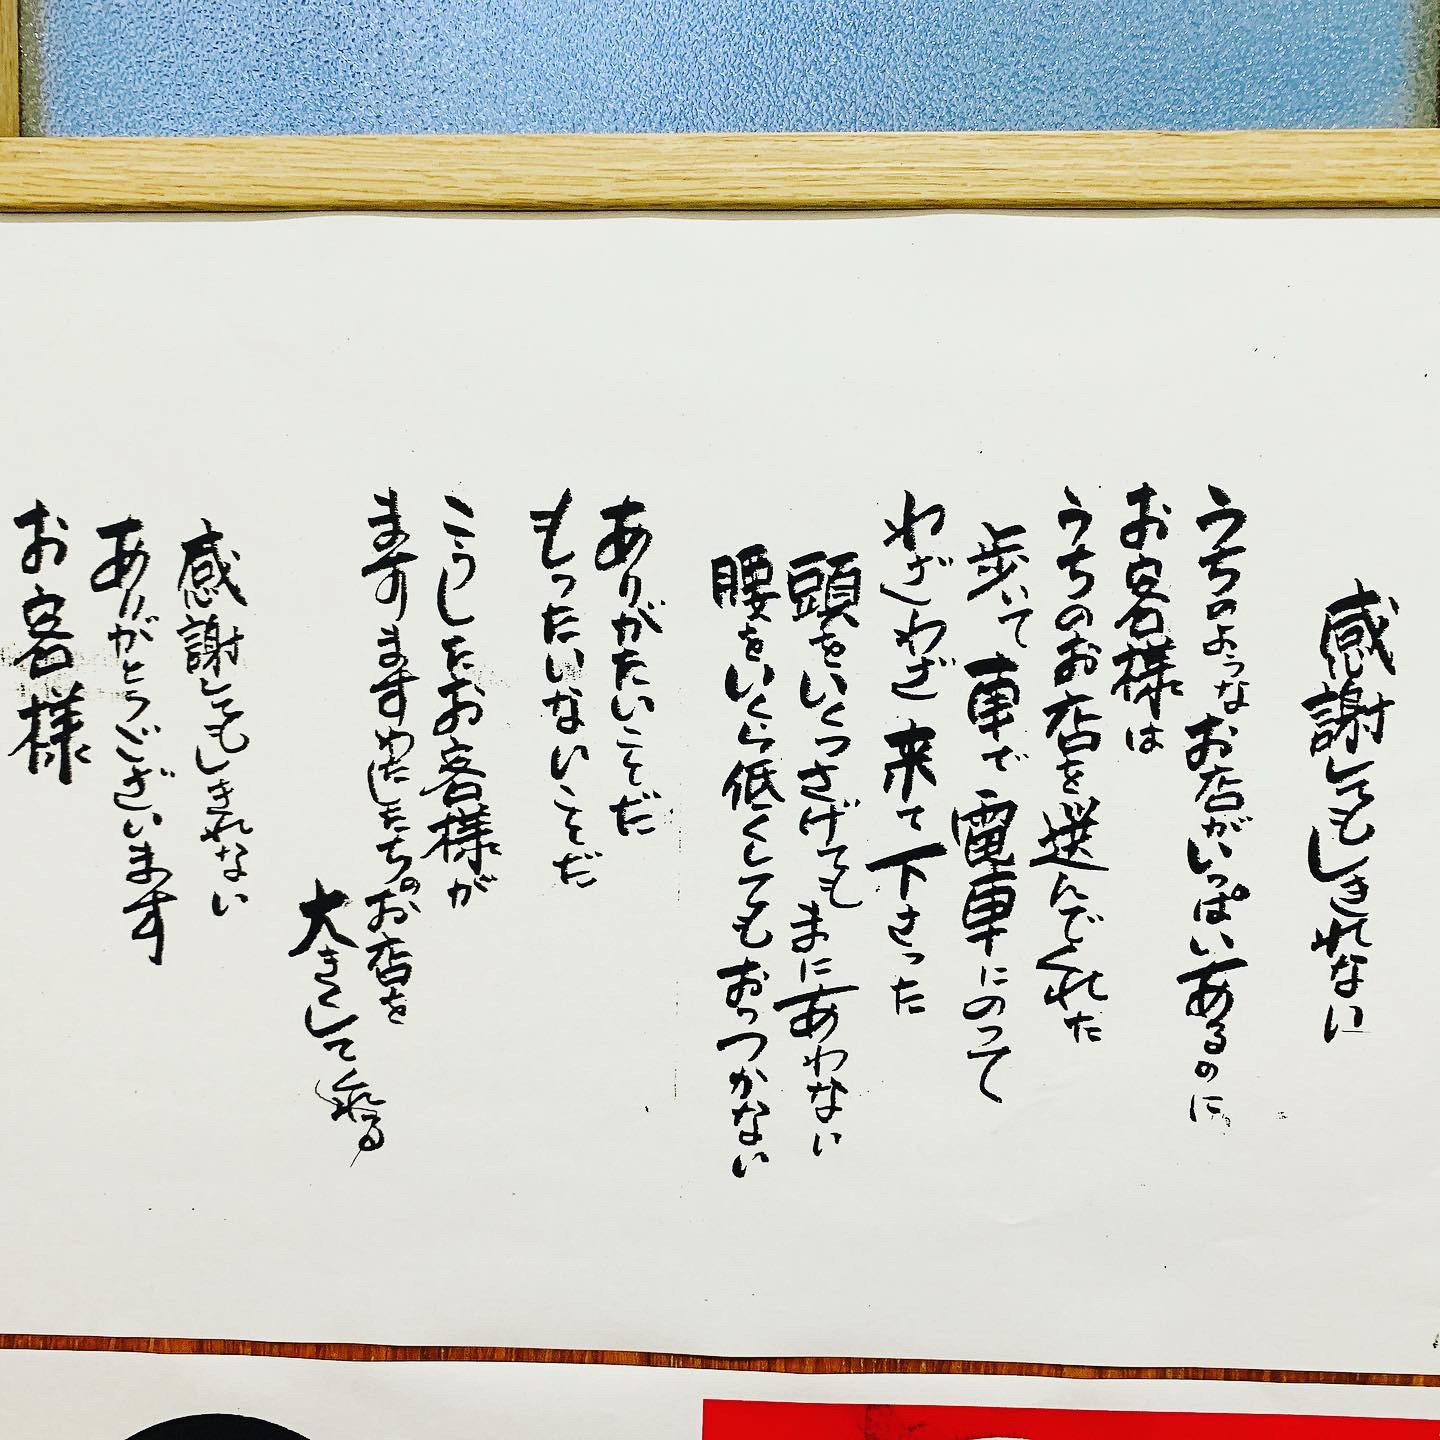 感謝してもしきれない
うちのようなお店がいっぱいあるのに
お客様は
うちのお店を選んでくれた
歩いて車で電車にのって
わざわざ来て下さった
頭をいくつさげてもまにあわない
腰をいくら低くしてもおっつかない
ありがたいことだ
もったいないことだ
こうしたお客様が
ますますわたしたちのお店を
大きくして呉れる
感謝してもしきれない
ありがとうございます
お客様